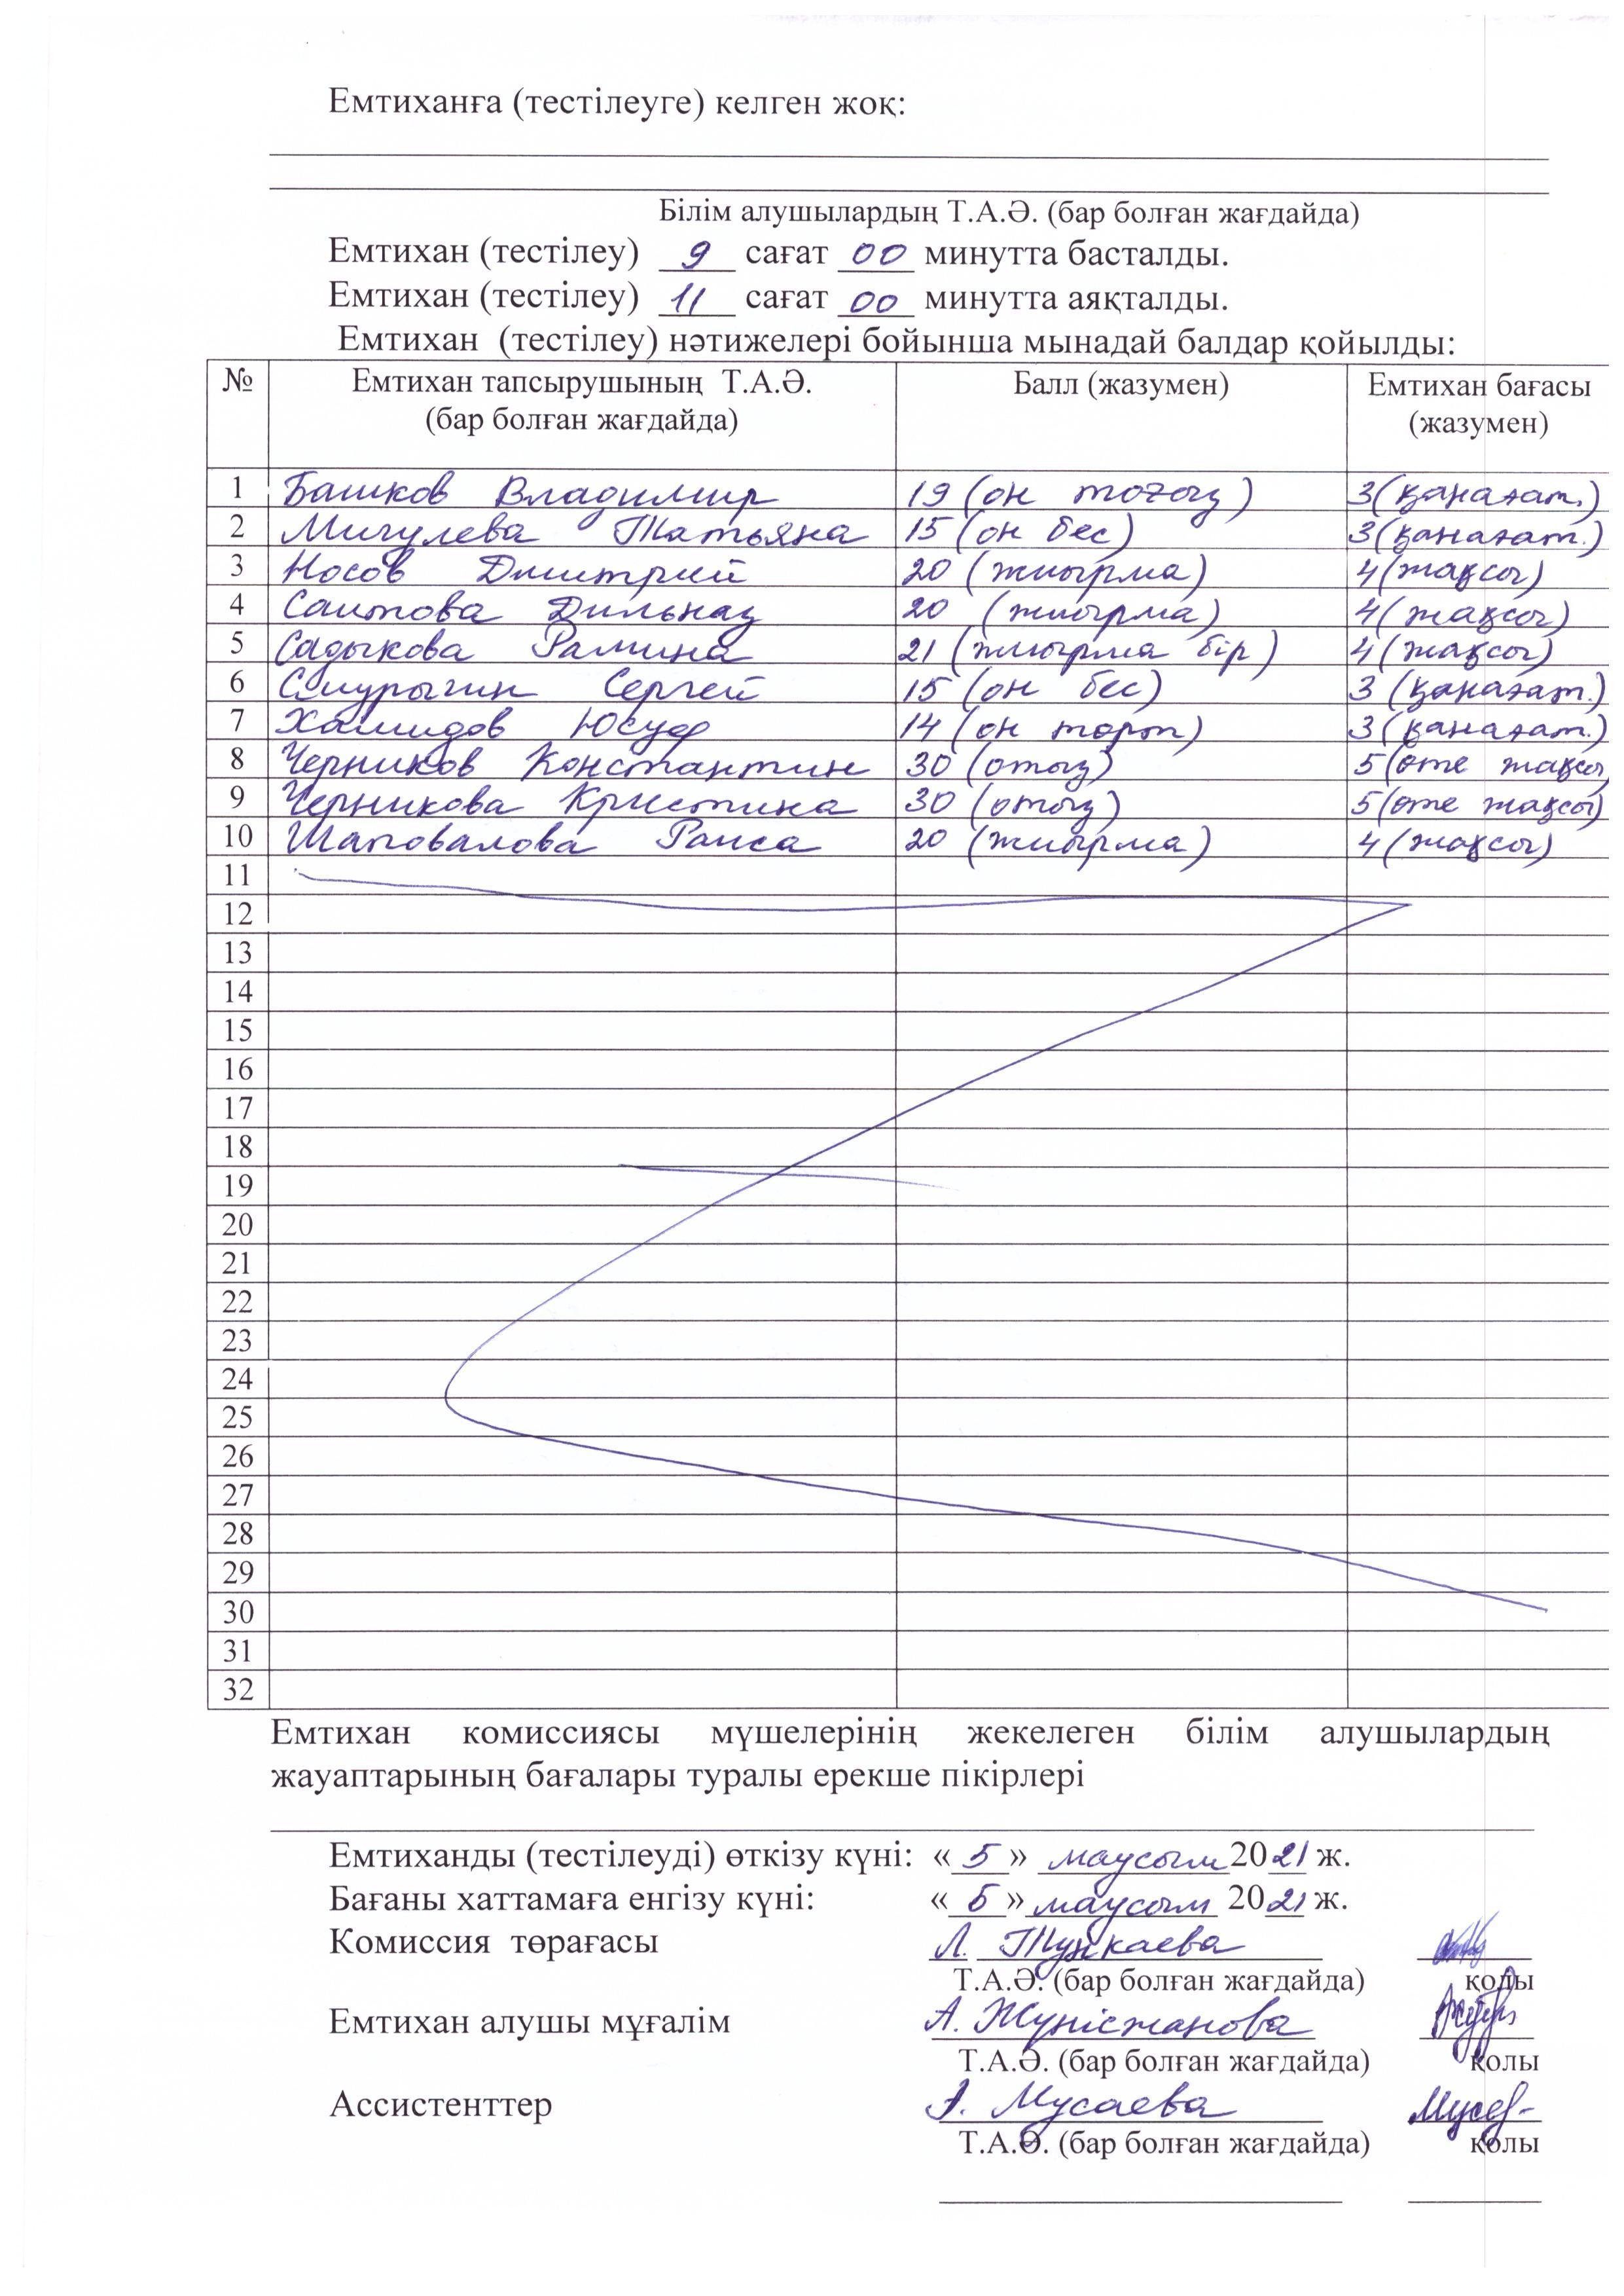 Емтиханға (тестілеуге) келген жоқ:
Білім алушылардың Т.А.Ә. (бар болған жағдайда)
Емтихан (тестілеу) 9 сағат 00 минутта басталды.
Емтихан (тестілеу) 11 сағат 00 минутта аяқталды.
Емтихан (тестілеу) нәтижелері бойынша мынадай балдар қойылды:
№ Емтихан тапсырушының Т.А.Ә. Балл (жазумен) Емтихан бағасы
(бар болған жағдайда) (жазумен)
1 Башков Владимир 19 (он тоғыз) 3 (қанағат.)
2 Мигулева Татьяна 15 (он бес) 3 (қанағат.)
3 Носов Дмитрий 20 (жиырма) 4 (жақсы)
4 Саитова Дильназ 20 (жиырма) 4 (жақсы)
5 Садыкова Рамина 21 (жиырма бір) 4 (жақсы)
6 Смурыгин Сергей 15 (он бес) 3 (қанағат.)
7 Хамидов Юсуф 14 (он төрт) 3 (қанағат.)
8 Черников Константин 30 (отыз) 5 (өте жақсы)
9 Черникова Кристина 30 (отыз) 5 (өте жақсы)
10 Шаповалова Раиса 20 (жиырма) 4 (жақсы)
11
12
13
14
15
16
17
18
19
20
21
22
23
24
25
26
27
28
29
30
31
32
Емтихан комиссиясы мүшелерінің жекелеген білім алушылардың
жауаптарының бағалары туралы ерекше пікірлері
Емтиханды (тестілеуді) өткізу күні: «5» маусым 2021 ж.
Бағаны хаттамаға енгізу күні: «5» маусым 2021 ж.
Комиссия төрағасы Л.
Т.А.Ә. (бар болған жағдайда) қолы
Емтихан алушы мұғалім А. Жүнісжанова
Т.А.Ә. (бар болған жағдайда) қолы
Ассистенттер Мусаева
Т.А.Ә. (бар болған жағдайда) қолы